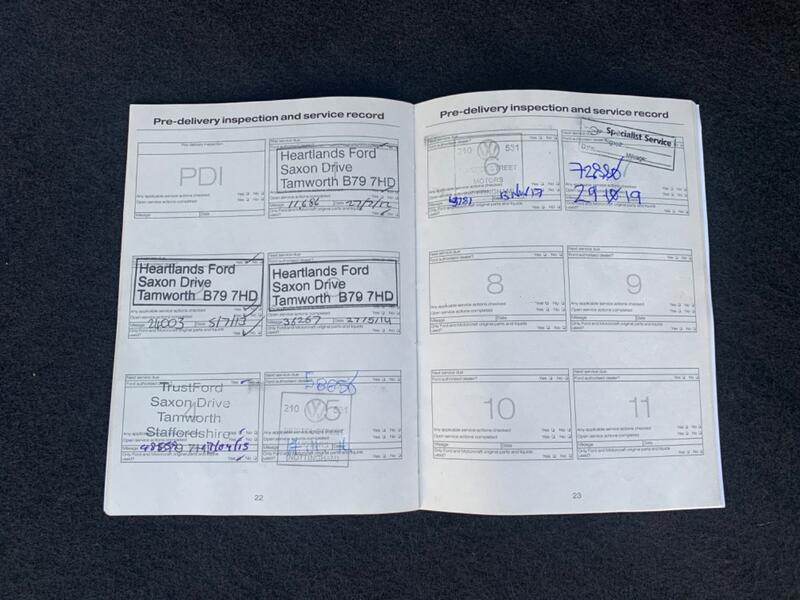 Pre-delivery inspection and service record
Pre delivery inspection
PDI
Any applicable service actions checked Yes No
Open service actions completed Yes No
Mileage Date
Next service due
Heartlands Ford
Saxon Drive
Tamworth B79 7HD
Any applicable service actions checked Yes No
Open service actions completed Yes No
Mileage 11,686 Date 27/7/12
Only Ford and Motorcraft original parts and liquids used? Yes No
Heartlands Ford
Saxon Drive
Tamworth B79 7HD
Any applicable service actions checked Yes No
Open service actions completed Yes No
Mileage 24003 Date 5/7/13
Only Ford and Motorcraft original parts and liquids used? Yes No
Next service due
Heartlands Ford
Saxon Drive
Tamworth B79 7HD
Any applicable service actions checked Yes No
Open service actions completed Yes No
Mileage 36267 Date 27/5/14
Only Ford and Motorcraft original parts and liquids used? Yes No
Next service due
Ford authorised dealer? Yes No
TrustFord
Saxon Drive
Tamworth
Staffordshire
B79 7HD
4
Any applicable service actions checked Yes No
Open service actions completed Yes No
Mileage 48859
Only Ford and Motorcraft original parts and liquids used? Yes No
Next service due
Ford authorised dealer? Yes No
210 531
5
NOTTINGHAM
22
Pre-delivery inspection and service record
210 531
6
MOTORS
13 Nov 17
Specialist Service
Date
Mileage
29 10 19
Next service due
Ford authorised dealer? Yes No
8
Any applicable service actions checked Yes No
Open service actions completed Yes No
Mileage Date
Only Ford and Motorcraft original parts and liquids used? Yes No
Next service due
Ford authorised dealer? Yes No
9
Any applicable service actions checked Yes No
Open service actions completed Yes No
Mileage Date
Only Ford and Motorcraft original parts and liquids used? Yes No
Next service due
Ford authorised dealer? Yes No
10
Any applicable service actions checked Yes No
Open service actions completed Yes No
Mileage Date
Only Ford and Motorcraft original parts and liquids used? Yes No
Next service due
Ford authorised dealer? Yes No
11
Any applicable service actions checked Yes No
Open service actions completed Yes No
Mileage Date
Only Ford and Motorcraft original parts and liquids used? Yes No
23